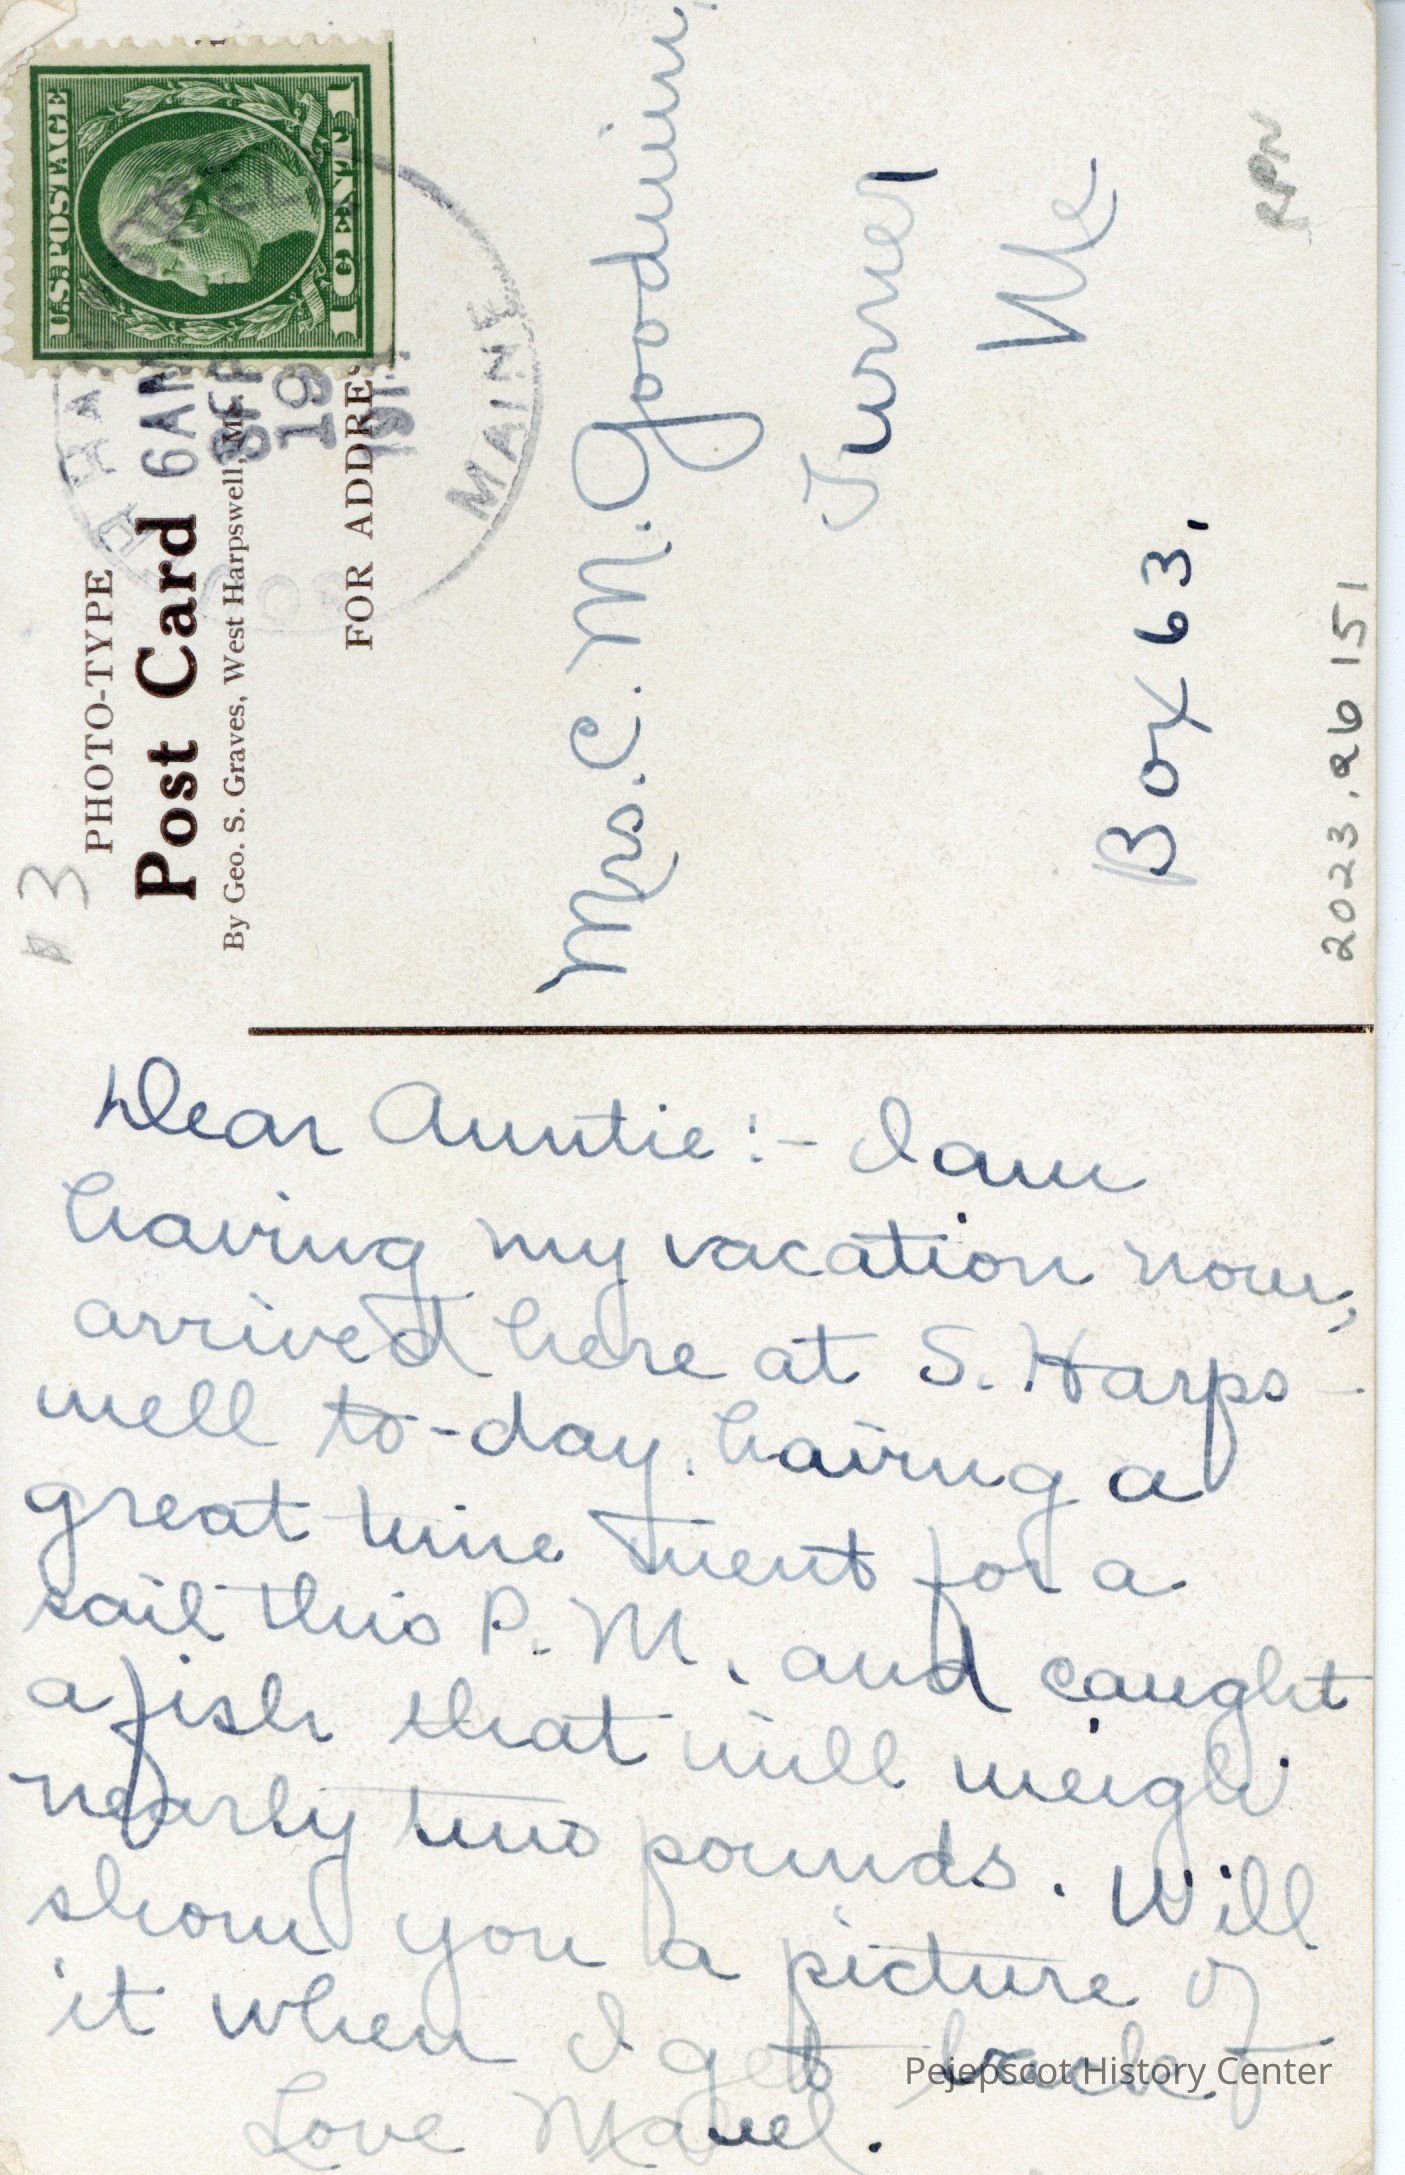 U.S. POSTAGE
1 CENT 1
6 AM
SEP
19
MAINE
# 3
PHOTO-TYPE
Post Card
By Geo. S. Graves, West Harpswell, Me.
FOR ADDRES
Mrs. C. M. Goodwin.
Turner
Me
Box 63.
RPN
2023.26 151
Dear Auntie:- I am
having my vacation now,
arrived here at S. Harps-
well to-day. having a
great time went for a
sail this P.M. and caught
a fish that will weigh
nearly two pounds. Will
show you a picture of
it when I get back
Love Mabel.
Pejepscot History Center